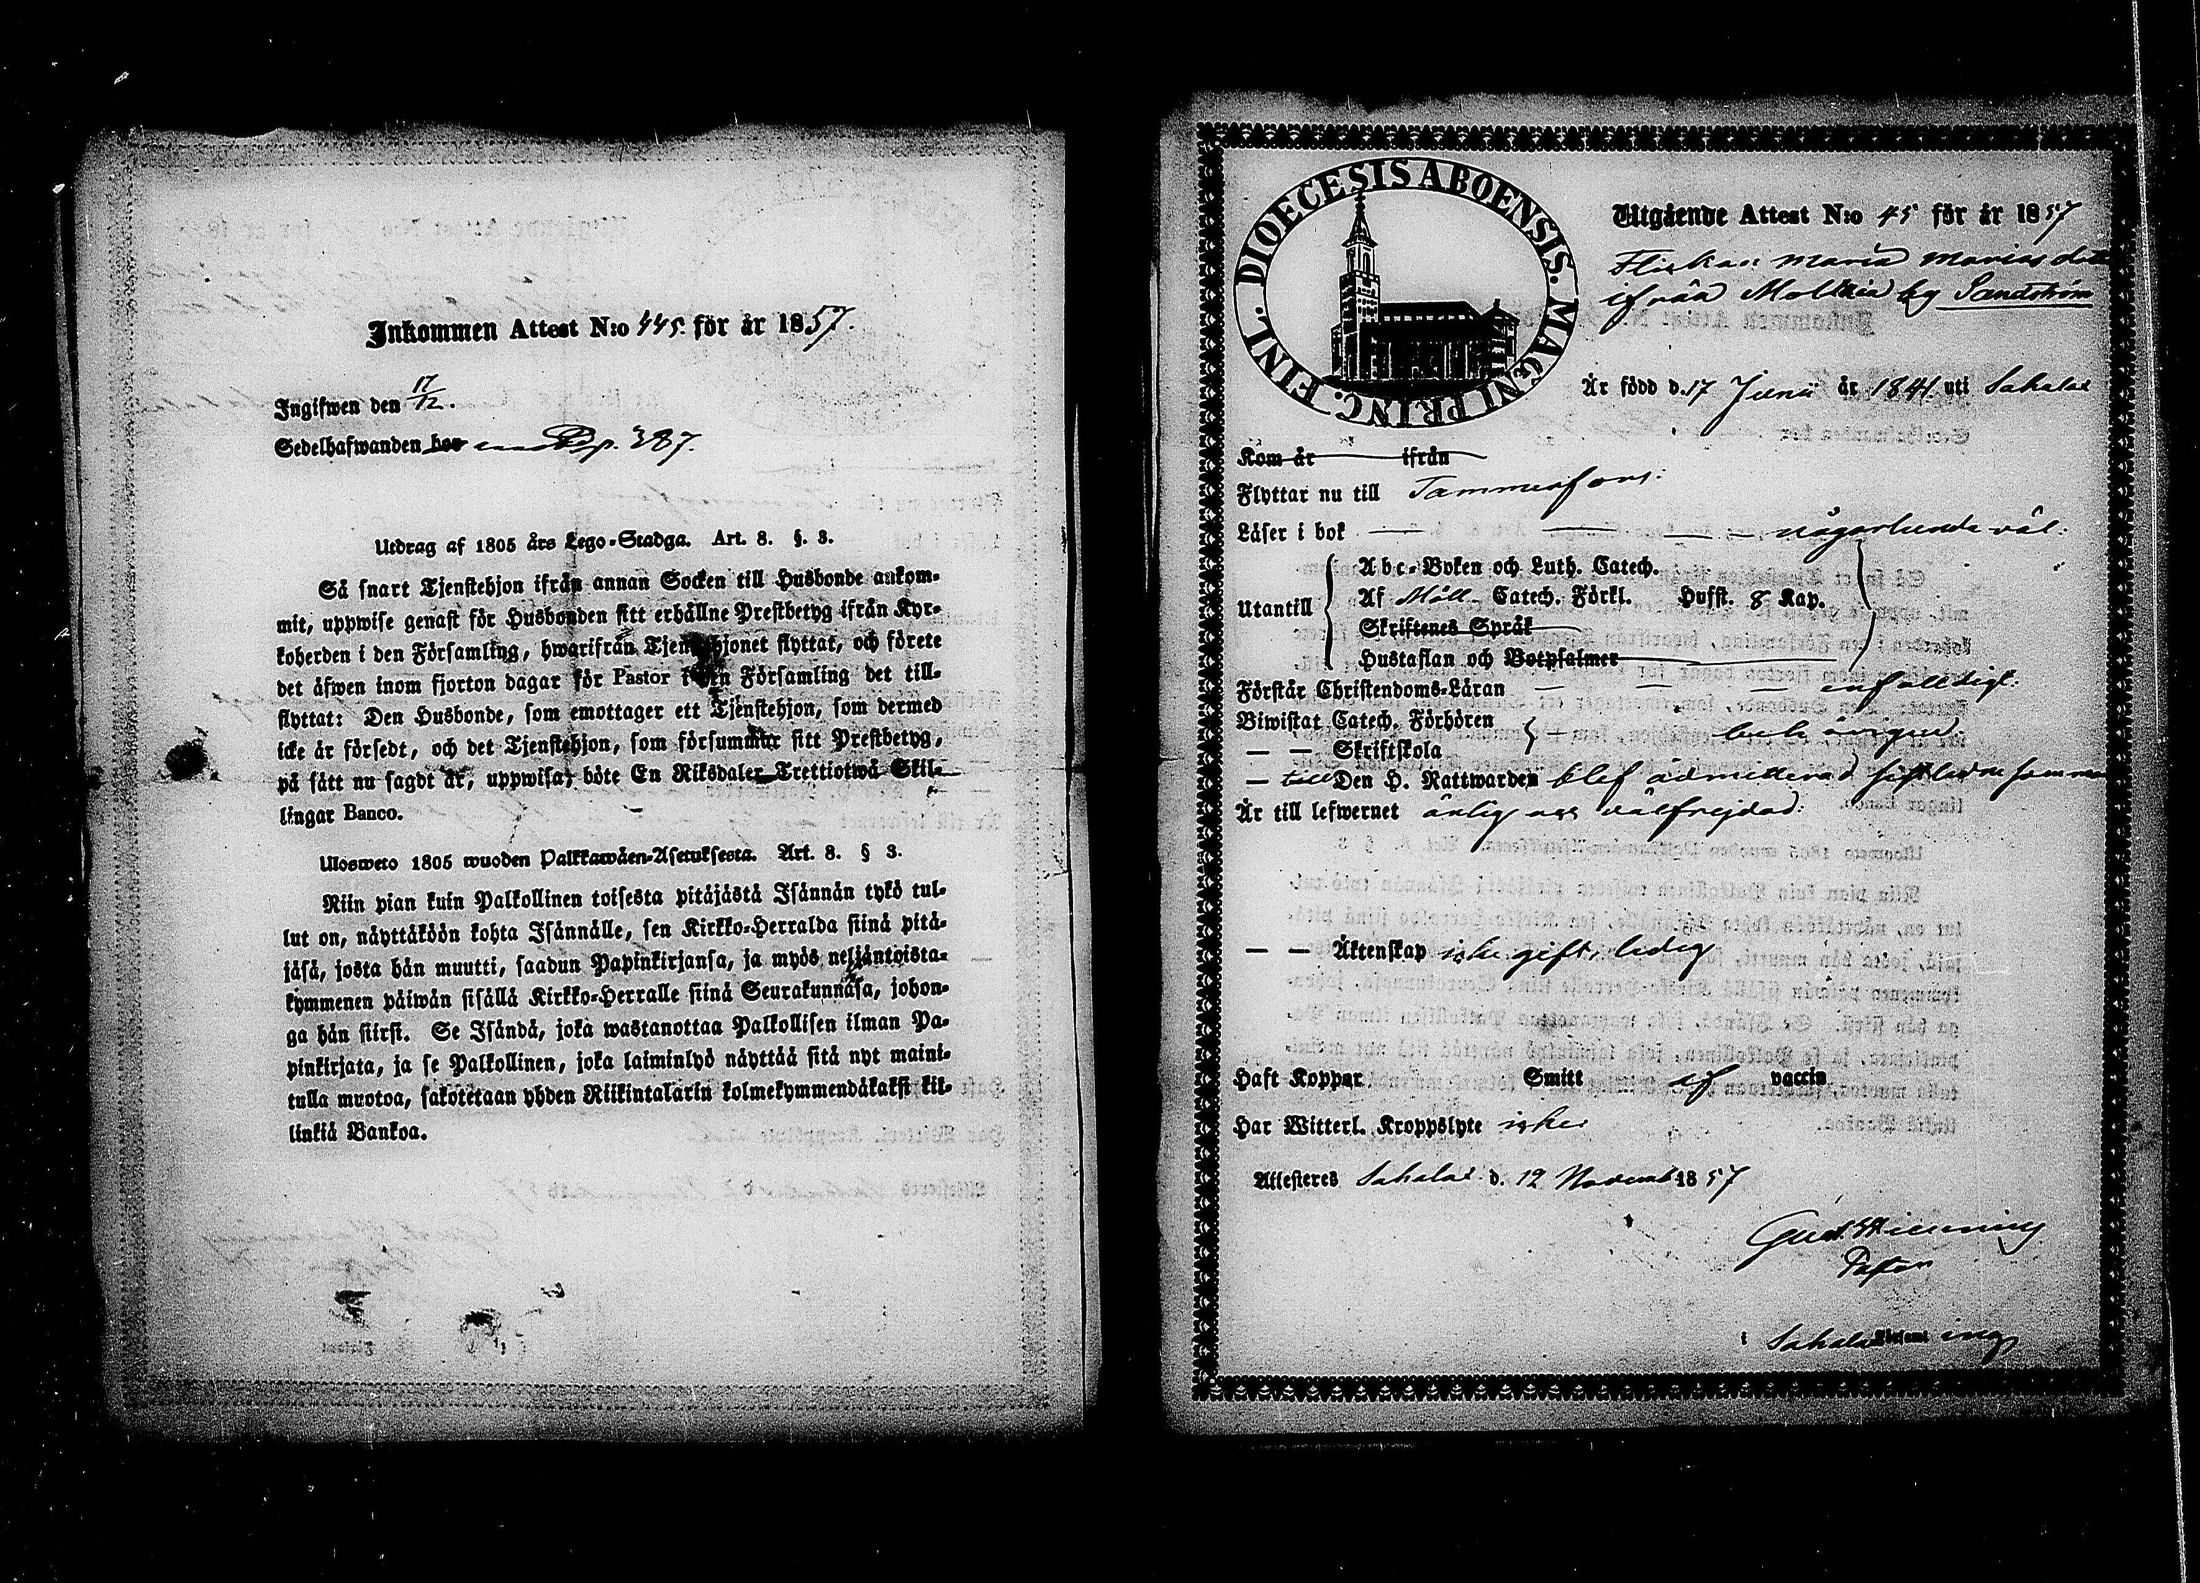 Inkommen Attest N:o 445. för år 1857.
Ingifwen den 17/12.
Sedelhafwanden bor p. 387.
Utdrag af 1805 års Lego-Stadga. Art. 8. §. 3.
Så snart Tjenstehjon ifrån annan Socken till Husbonde ankom-
mit, uppwise genast för Husbonden sitt erhållne Prestbetyg ifrån Kyr-
koherden i den Församling, hwarifrån Tjenstehjonet flyttat, och förete
det äfwen inom fjorton dagar för Pastor i den Församling det till-
flyttat: Den Husbonde, som emottager ett Tjenstehjon, som dermed
icke är försedt, och det Tjenstehjon, som försummar sitt Prestbetyg,
på sätt nu sagdt är, uppwisa, böte En Riksdaler Trettiotwå Skil-
lingar Banco.
Ulosweto 1805 wuoden Palkkawäen-Asetuksesta. Art. 8. § 3.
Niin pian kuin Palkollinen toisesta pitäjästä Isännän tykö tul-
lut on, näyttäköön kohta Isännälle, sen Kirkko-Herralda siinä pitä-
jäsä, josta hän muutti, saadun Papinkirjansa, ja myös neljäntoista-
kymmenen päiwän sisällä Kirkko-Herralle siinä Seurakunnasa, johon-
ga hän siirsi. Se Isändä, joka wastanottaa Palkollisen ilman Pa-
pinkirjata, ja se Palkollinen, joka laiminlyö näyttää sitä nyt maini-
tulla muotoa, sakotetaan yhden Riikintalarin kolmekymmendäkaksi kil-
linkiä Bankoa.
DIOECESIS ABOENSIS. MAGNI PRINC. FINL.
Utgående Attest N:o 45 för år 1857
Flickan Maria Marias dotter
ifrån by Sandström
Är född d. 17 Junii år 1841 uti Sahalax
Kom år ifrån
Flyttar nu till Tammerfors.
Läser i bok — — — — någorlunda väl.
Utantill
Abc-Boken och Luth. Catech.
Af Möll. Catech. Förkl. Hufst. 8 Kap.
Skriftenes Språk
Hustaflan och Botpsalmer
Förstår Christendoms-Läran — — — enfaldigt.
Biwistat Catech. Förhören
— — Skriftskola
— till Den H. Nattwarden blef admitterad sistledne sommar
Är till lefwernet ärlig och välfrejdad.
— — Äktenskap icke gift, ledig
Haft Koppor Smitt af vaccin
Har Witterl. Kroppslyte icke
Attesteres Sahalax d. 12 Novemb. 1857
Pastor
i Sahalax